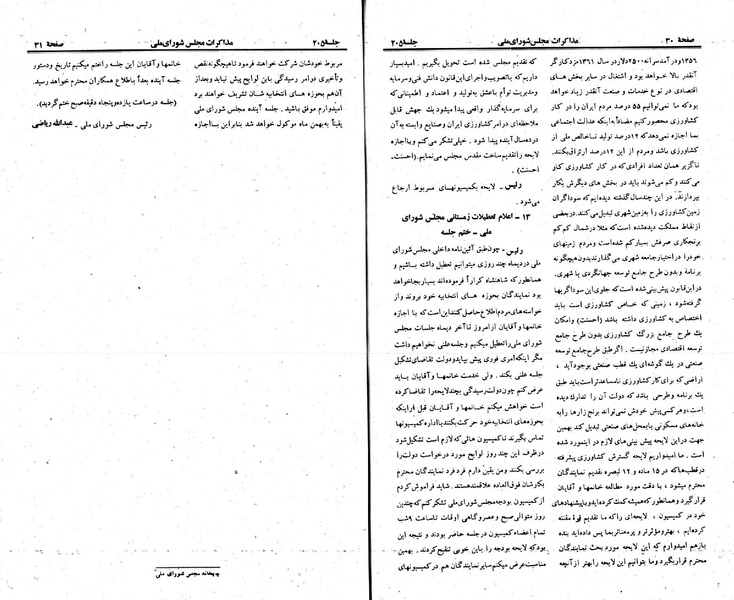 صفحهٔ ۳۰ مذاکرات مجلس شورای ملی جلسهٔ ۲۰۵
۱۳۵۶ و درآمد سرانه ۲۵۰۰ دلار در سال ۱۳۶۱ مزد کارگر
آنقدر بالا خواهد بود و اشتغال در سایر بخش های
اقتصادی در نوع خدمات و صنعت آنقدر زیاد خواهد
بود که ما نمی‌توانیم ۵۵ درصد مردم ایران را در کار
کشاورزی محصور کنیم مضافاً به اینکه عدالت اجتماعی
بما اجازه نمی‌دهد که ۱۲ درصد تولید ناخالص ملی از
کشاورزی باشد و مردم از این ۱۲ درصد ارتزاق بکنند.
ناگزیر همان تعداد افرادی که در کار کشاورزی کار
می کنند و کم می‌شوند باید در بخش های دیگرش بکار
بپردازند. در این چند سال گذشته دیده‌ایم که سوداگران
زمین کشاورزی را به زمین شهری تبدیل می‌کنند. در بعضی
از نقاط مملکت دیده شده است که مثلا در شمال کم کم
برنجکاری صرفش بسیار کم شده است و مردم زمینهای
خود را در اختیار جامعه شهری می‌گذارند بدون هیچگونه
برنامهٔ و بدون طرح جامع توسعه جهانگردی یا شهری.
در این قانون پیش بینی شده است که جلوی این سوداگریها
گرفته شود، زمینی که خاص کشاورزی است باید
اختصاص به کشاورزی داشته باشد (احسنت) و امکان
یک طرح جامع بزرگ کشاورزی بدون طرح جامع
توسعه اقتصادی مجاز نیست. اگر طبق طرح جامع توسعه
صنعتی در یک گوشه‌ای یک قطب صنعتی بوجود آید،
اراضی که برای کار کشاورزی نامساعدتر است باید طبق
یک برنامه و طرحی باشد که دولت آن را تدارک دیده
است و هر کسی پیش خودش نمی‌تواند برنج زارها را به
خانه‌های مسکونی یا بمحل‌های صنعتی تبدیل کند بهمین
جهت در این لایحه پیش بینی های لازم در اینمورد شده
است. ما امیدواریم لایحه گسترش کشاورزی پیشرفته
در قطب‌ها که در ۱۵ ماده و ۱۲ تبصره تقدیم نمایندگان
محترم میشود، با دقت مورد مطالعه خانمها و آقایان
قرار گیرد و همانطور که همیشه کمک کرده‌اید و با پیشنهادهای
خود در کمیسیون، لایحه‌ای را که ما تقدیم قوهٔ مقننه
کرده‌ایم، بهتر و مؤثرتر و پرمعناتر بما پس داده‌اید بنده
بازهم امیدوارم که این لایحه مورد بحث نمایندگان
محترم قرار بگیرد و ما بتوانیم این لایحه را بهتر از آنچه
که تقدیم مجلس شده است تحویل بگیریم. امید بسیار
داریم که با تصویب و اجرای این قانون دانش فنی و سرمایه
و مدیریت توأم با عشق به تولید و اعتماد و اطمینانی که
برای سرمایه‌گذار واقعی پیدا میشود یک جهش قابل
ملاحظه‌ای در امر کشاورزی ایران و صنایع وابسته به آن
در ده سال آینده پیدا شود. خیلی تشکر می‌کنم و با اجازه
لایحه را تقدیم ساحت مقدس مجلس می‌نمایم. (احسنت -
احسنت)
رئیس - لایحه بکمیسیونهای مربوط ارجاع
می‌شود.
۱۳ - اعلام تعطیلات زمستانی مجلس شورای
ملی - ختم جلسه
رئیس - چون طبق آئین‌نامه داخلی مجلس شورای
ملی در دیماه چند روزی میتوانیم تعطیل داشته باشیم و
همانطور که شاهنشاه کراراً فرموده‌اند بسیار بجا خواهد
بود نمایندگان بحوزه های انتخابیه خود بروند و از
خواسته‌های مردم اطلاع حاصل کنند این است که با اجازه
خانمها و آقایان از امروز تا آخر دیماه جلسات مجلس
شورای ملی را تعطیل میکنیم و جلسه علنی نخواهیم داشت
مگر اینکه امری فوری پیش بیاید و دولت تقاضای تشکیل
جلسه علنی بکند. ولی خدمت خانمها و آقایان باید
عرض کنم چون دولت رسیدگی بچند لایحه را تقاضا کرده
است خواهش میکنم خانمها و آقایان قبل از اینکه
بحوزه‌های انتخابیه خود حرکت بکنند با اداره کمیسیونها
تماس بگیرند تا کمیسیون هائی که لازم است تشکیل شود
در ظرف این چند روز لوایح مورد درخواست دولت را
بررسی بکنند و من یقین دارم فرد فرد نمایندگان محترم
بکارشان فوق العاده علاقمند هستند. شاید فراموش کردم
از کمیسیون بودجه مجلس شورای ملی تشکر کنم که چندین
روز متوالی صبح و عصر و گاهی اوقات تا ساعت ۹ شب
تمام اعضاء کمیسیون در جلسه حاضر بودند و نتیجه این
بود که لایحه بودجه را باین خوبی تنقیح کردند. بهمین
مناسبت عرض میکنم سایر نمایندگان هم در کمیسیونهای
جلسهٔ ۲۰۵ مذاکرات مجلس شورای ملی صفحهٔ ۳۱
مربوط خودشان شرکت خواهند فرمود تا هیچگونه نقص
و تأخیری در امر رسیدگی باین لوایح پیش نیاید و بعد از
آن هم بحوزه های انتخابیه شان تشریف خواهند برد
امیدوارم موفق باشید. امر دیگری نیست جلسه آینده
یقیناً به بهمن ماه موکول خواهد شد بنابراین با اجازه
خانمها و آقایان این جلسه را ختم میکنیم تاریخ و دستور
جلسه آینده بعداً باطلاع همکاران محترم خواهد رسید.
(جلسه در ساعت یازده و پنجاه دقیقه صبح ختم گردید).
رئیس مجلس شورای ملی - عبدالله ریاضی
چاپخانه مجلس شورای ملی